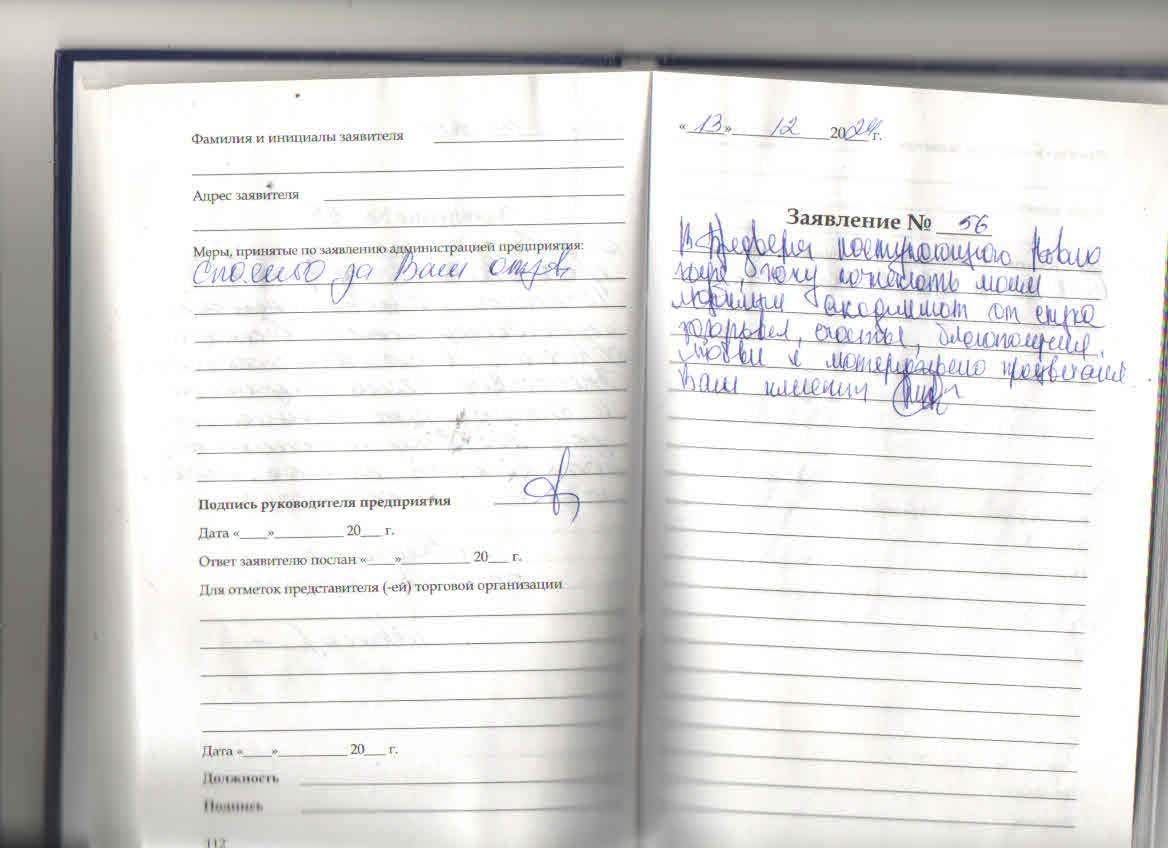 Фамилия и инициалы заявителя
Адрес заявителя
Меры, принятые по заявлению администрацией предприятия:
Спасибо за Ваш отзыв
Подпись руководителя предприятия
Дата «___»__________ 20___ г.
Ответ заявителю послан «____»__________ 20___ г.
Для отметок представителя (-ей) торговой организации
Дата «____»__________ 20___ г.
Должность
Подпись
112
«13» 12 2024 г.
Заявление № 56
В преддверии наступающего Нового
года, хочу пожелать моим
любимым от
здоровья, счастья, благополучия,
любви и материального процветания.
Ваш клиент